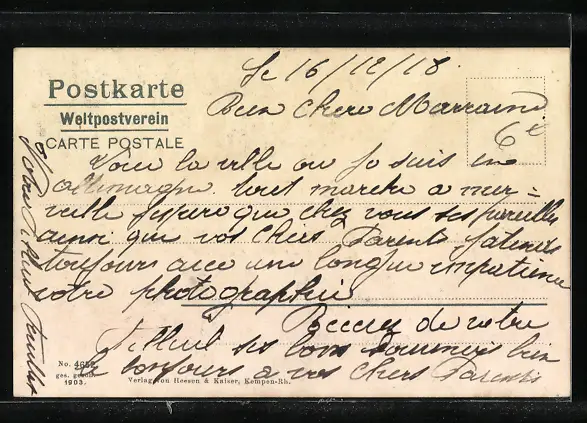 Le 16/12/18.
Postkarte
Weltpostverein
CARTE POSTALE
Bien Chere Marraine
6€
Voici la ville ou Je suis en
allemagne. tout marche a mer=
veille J'espere que chez vous ses pareille
ainsi que vos Chers Parents. J'atends
toujours avec une longue impatience
votre photographie
de votre
Filleul ses bons bien
bonjours a vos Chers Parents
No. 4652.
ges. gesch.
1903.
Verlag von Heesen & Kaiser, Kempen-Rh.